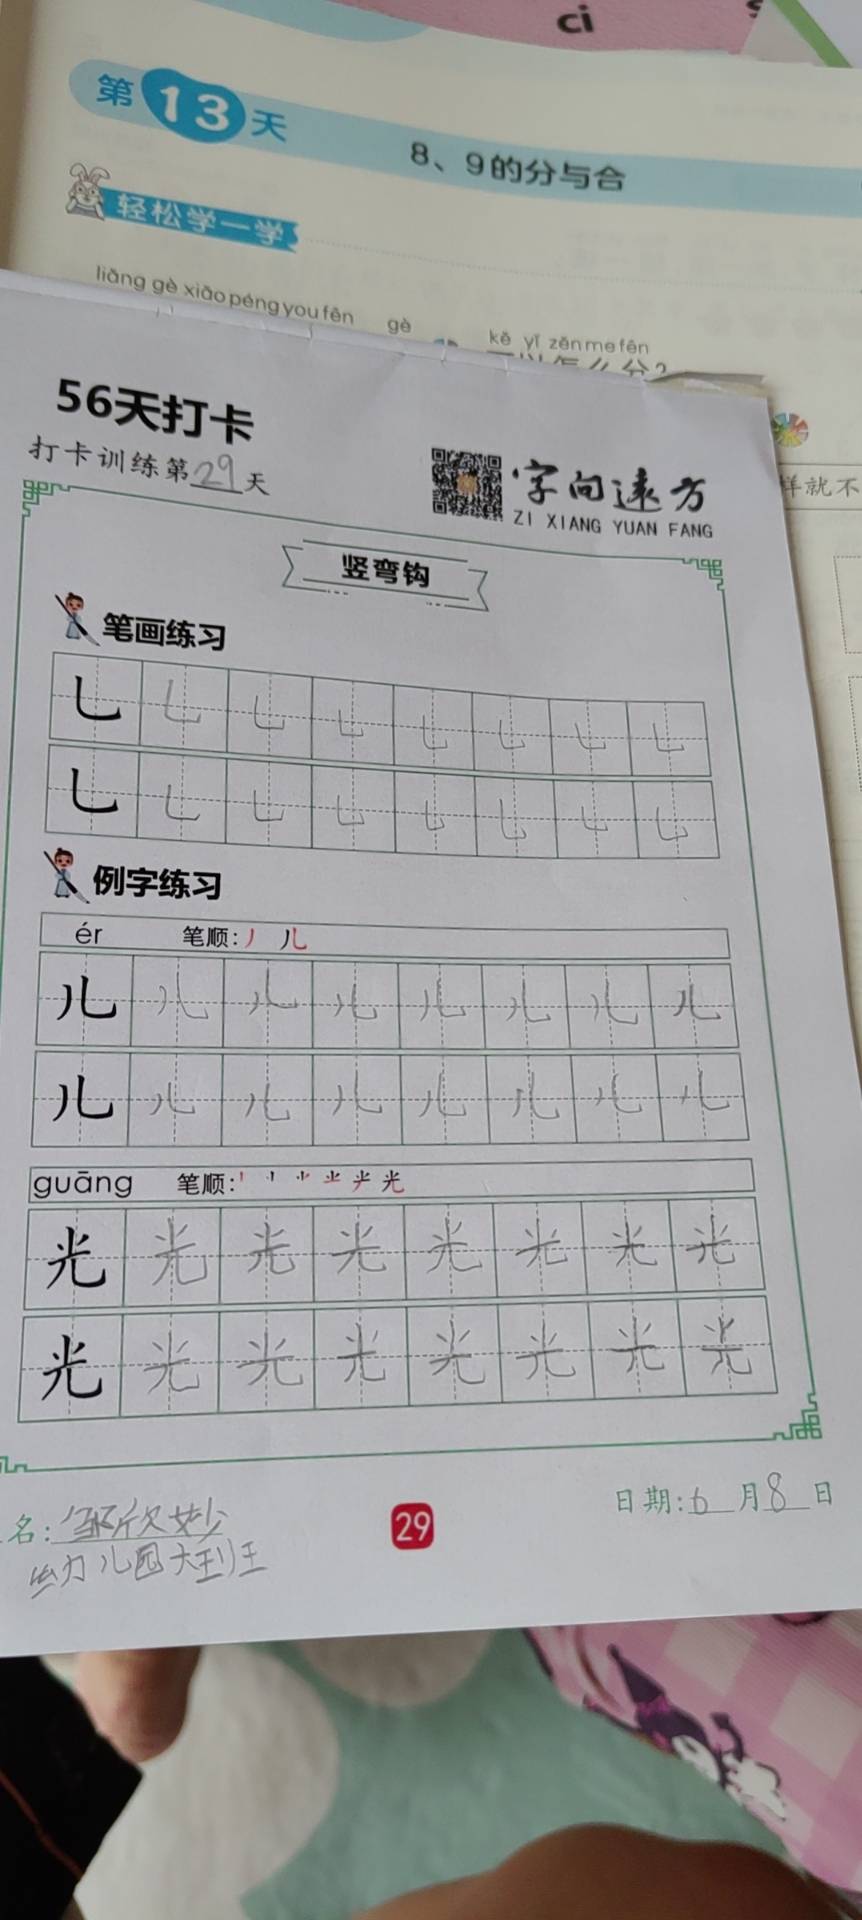 ci
第13天
8、9的分与合
轻松学一学
liǎng gè xiǎo péng you fēn gè kě yǐ zěn me fēn
56天打卡
打卡训练第29天
字向远方
ZI XIANG YUAN FANG
样就不
竖弯钩
笔画练习
乚 乚 乚 乚 乚 乚 乚 乚
乚 乚 乚 乚 乚 乚 乚 乚
例字练习
ér 笔顺:丿 儿
儿 儿 儿 儿 儿 儿 儿 儿
儿 儿 儿 儿 儿 儿 儿 儿
guāng 笔顺: 光
光 光 光 光 光 光 光 光
光 光 光 光 光 光 光 光
名:邹欣妙
幼儿园大班
29
日期:6月8日